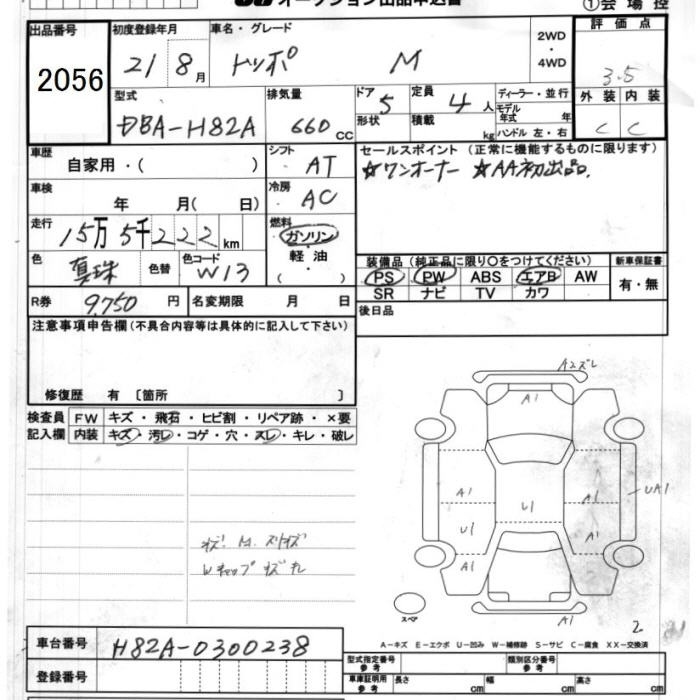 オークション出品申込書
①会場控
出品番号 2056
初度登録年月 21 8月
車名・グレード トッポ M
2WD・4WD
評価点 3.5
型式 DBA-H82A
排気量 660 cc
ドア 5 形状
定員 4人 積載 kg
ディーラー・並行
モデル年式 年
ハンドル 左・右
外装 C 内装 C
車歴 自家用・( )
シフト AT
セールスポイント(正常に機能するものに限ります)
☆ワンオーナー ☆AA初出品.
車検 年 月( 日)
冷房 AC
走行 15万5千222km
燃料 ガソリン 軽油 ・( )
色 真珠 色替 色コード W13
装備品(純正品に限り○をつけてください)
新車保証書 有・無
PS PW ABS エアB AW
SR ナビ TV カワ
R券 9,750円 名変期限 月 日
後日品
注意事項申告欄(不具合内容等は具体的に記入して下さい)
修復歴 有〔箇所 〕
検査員記入欄
FW キズ・飛石・ヒビ割・リペア跡・×要
内装 キズ・汚レ・コゲ・穴・スレ・キレ・破レ
A2ズレ
A1
A1 A1 UA1
U1 U1 A1
A1
A1
スペア
2
A-キズ E-エクボ U-凹み W-補修跡 S-サビ C-腐食 XX-交換済
車台番号 H82A-0300238
登録番号
型式指定番号参考
類別区分番号参考
車庫証明用参考 長さ cm 幅 cm 高さ cm